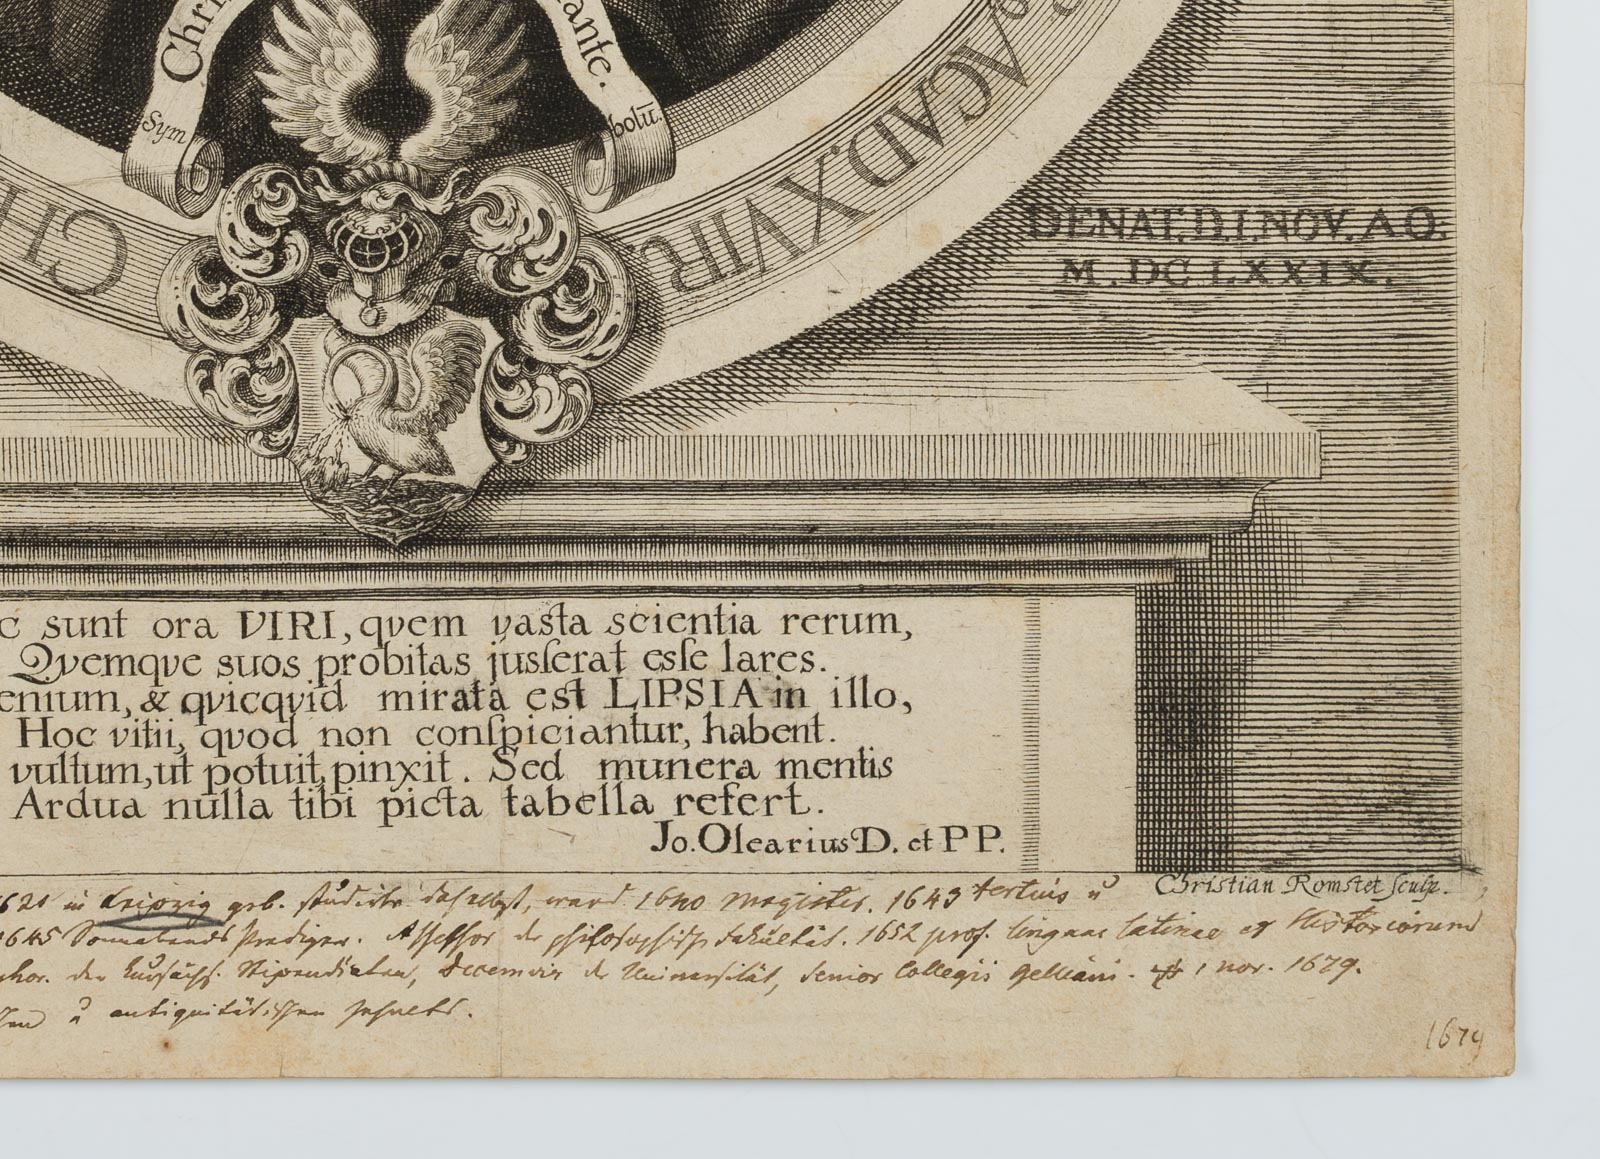 Chri
ante.
Sym
bolū.
CH
ACAD. X. VIR.
DENAT. D. I. NOV. AO.
M. DC LXXIX.
c sunt ora VIRI, qvem vasta scientia rerum,
Qvemqve suos probitas jusserat esse lares.
enium, & qvicqvid mirata est LIPSIA in illo,
Hoc vitii, qvod non conspiciantur, habent.
vultum, ut potuit, pinxit. Sed munera mentis
Ardua nulla tibi picta tabella refert.
Jo. Olearius D. et P P.
Christian Romstet sculp.
621 in Leipzig geb. studirte daselbst, ward 1640 Magister. 1643 tertius u
1645 Sonnabends Prediger. Assessor der philosophisch Fakultät. 1652 prof. linguae latinae et Historiarum
phor. der kursächs. Stipendiaten, Decemvir der Universität, Senior Collegii 1 nov. 1679.
u antiquitätischen
1679